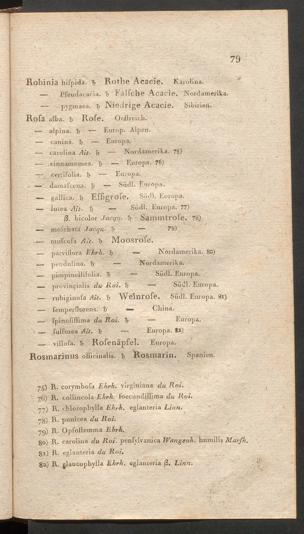 79
Robinia hiſpida. ♄ Rothe Acacie. Karolina.
— Pſeudacacia. ♄ Falſche Acacie. Nordamerika.
— pygmaea. ♄ Niedrige Acacie. Sibirien.
Roſa alba. ♄ Roſe. Oeſtreich.
— alpina. ♄ — Europ. Alpen.
— canina. ♄ — Europa.
— carolina Ait. ♄ — Nordamerika. 75)
— cinnamomea. ♄ — Europa. 76)
— centifolia. ♄ — Europa.
— damaſcena. ♄ — Südl. Europa.
— gallica. ♄ Eſſigroſe. Südl. Europa.
— lutea Ait. ♄ — Südl. Europa. 77)
β. bicolor Jacqu. ♄ Sammtroſe. 78)
— moſchata Jacqu. ♄ — 79)
— muſcoſa Ait. ♄ Moosroſe.
— parviflora Ehrh. ♄ — Nordamerika. 80)
— pendulina. ♄ — Nordamerika.
— pimpinellifolia. ♄ — Südl. Europa.
— provincialis du Roi. ♄ — Südl. Europa.
— rubiginoſa Ait. ♄ Weinroſe. Südl. Europa. 81)
— ſemperflorens. ♄ — China.
— ſpinoſiſſima du Roi. ♄ — Europa.
— ſulfurea Ait. ♄ — Europa. 82)
— villoſa. ♄ Roſenäpfel. Europa.
Rosmarinus officinalis. ♄ Rosmarin. Spanien.
75) R. corymboſa Ehrh. virginiana du Roi.
76) R. collincola Ehrh. foecundiſſima du Roi.
77) R. chlorophylla Ehrh. eglanteria Linn.
78) R. punicea du Roi.
79) R. Opſoſtemma Ehrh.
80) R. carolina du Roi. penſylvanica Wangenh. humilis Marſh.
81) R. eglanteria du Roi.
82) R. glaucophylla Ehrh. eglanteria β. Linn.